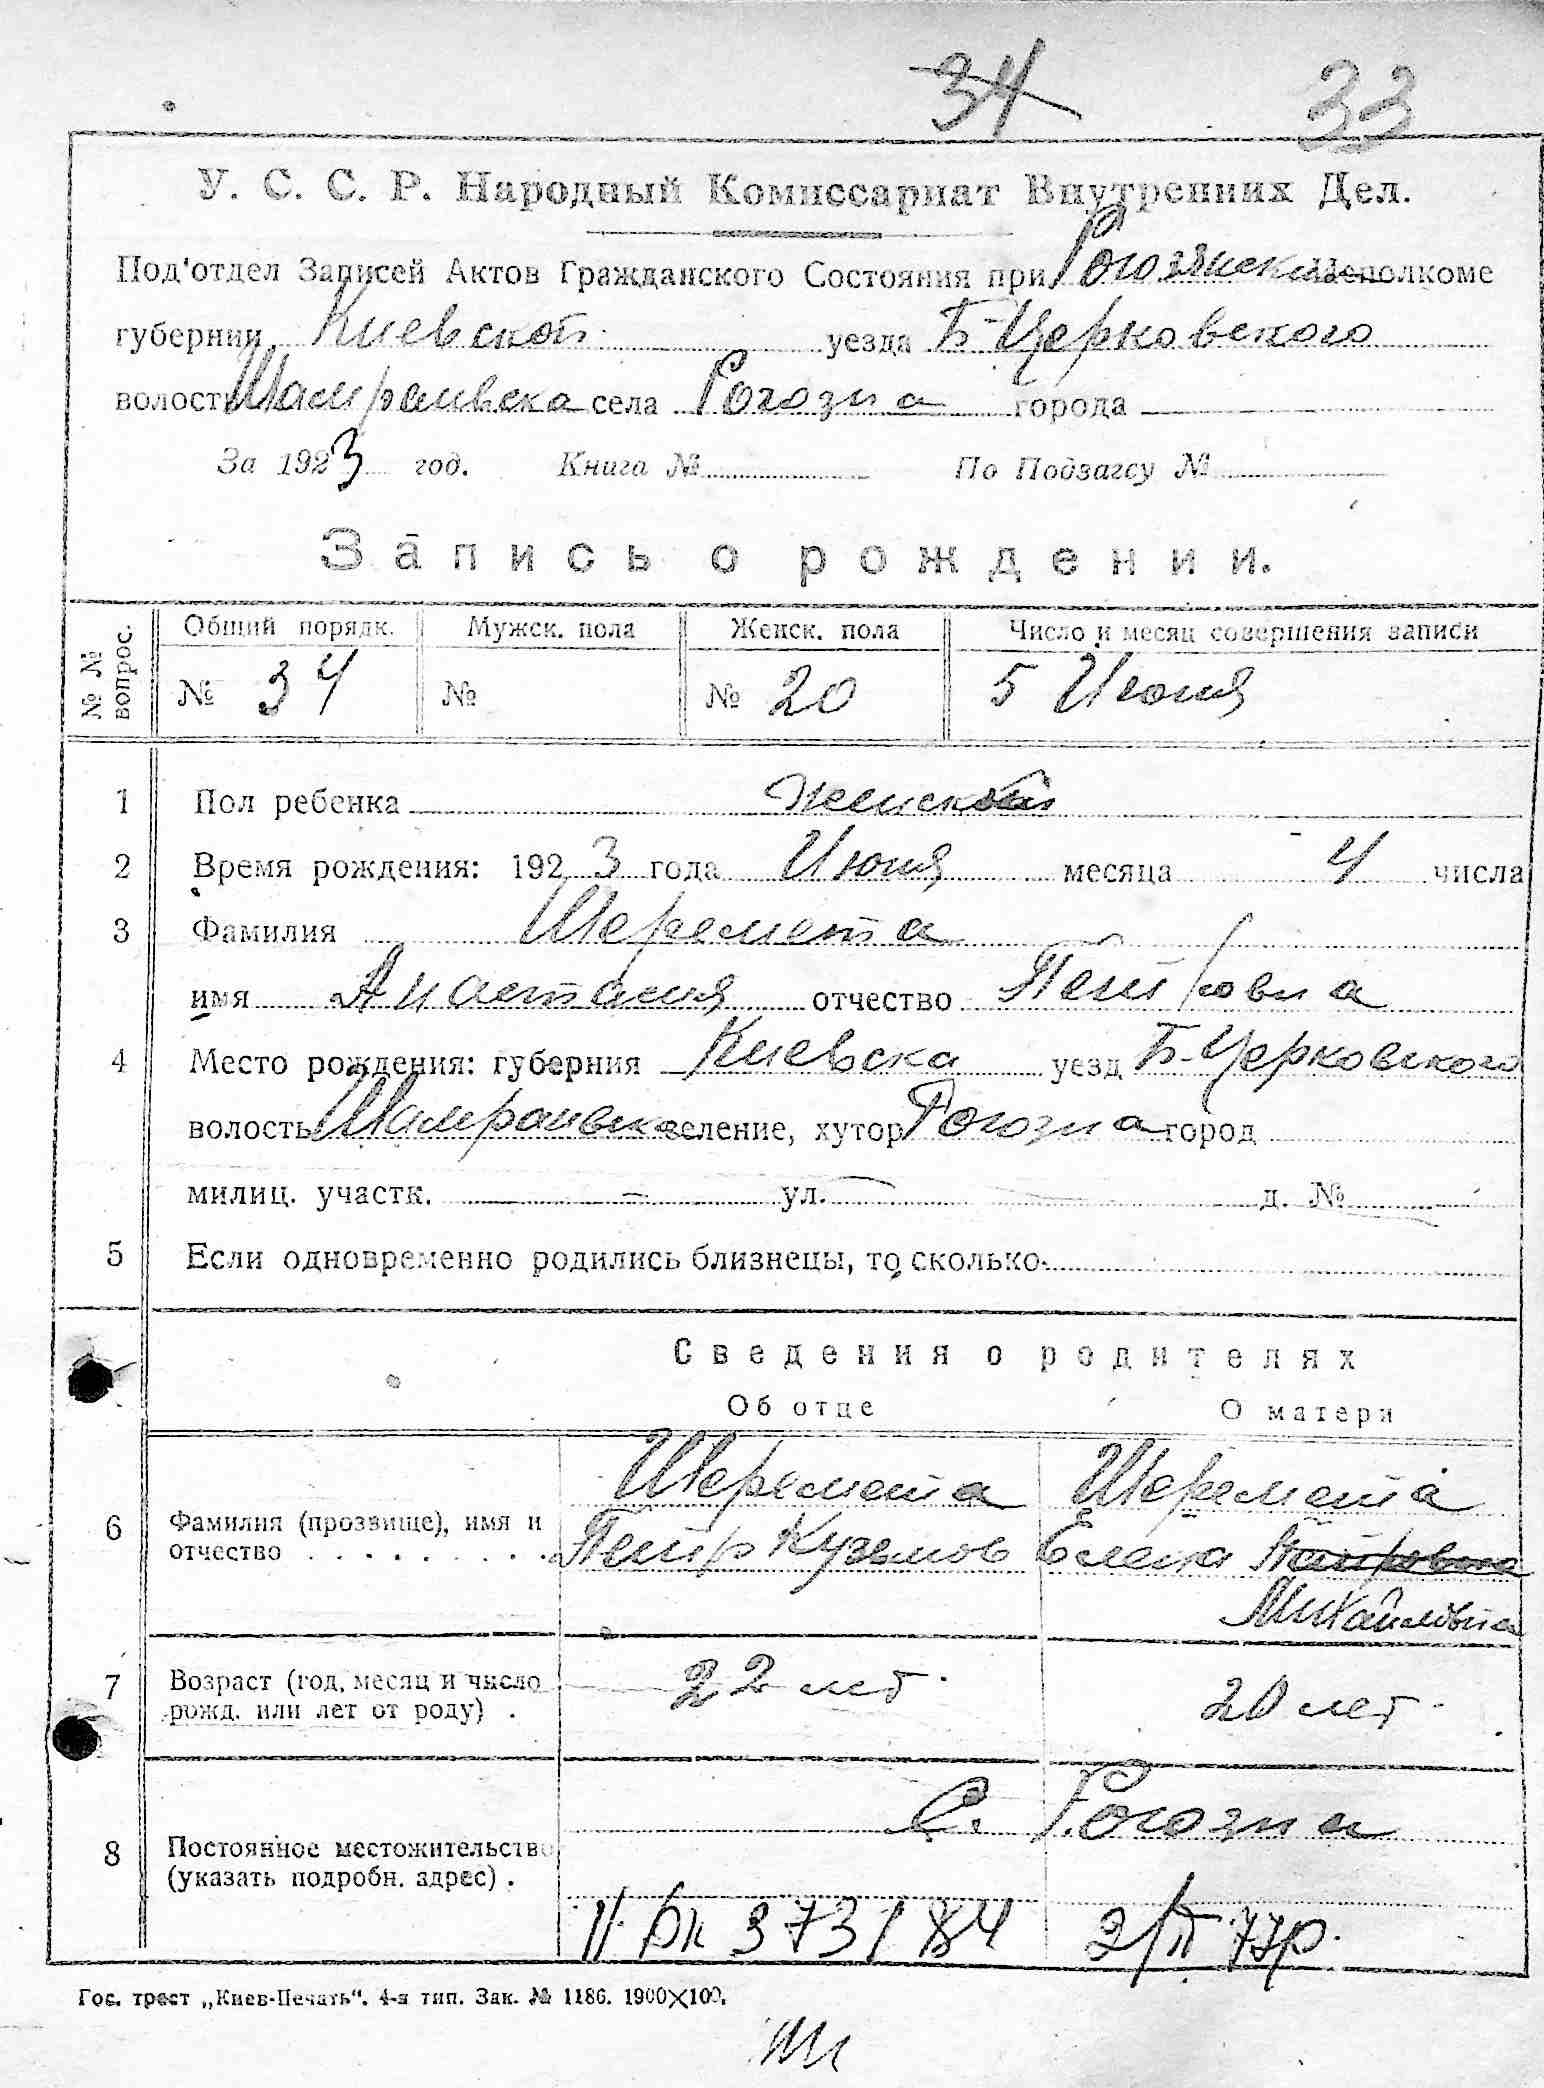 34 33
У. С. С. Р. Народный Комиссариат Внутренних Дел.
Под'отдел Записей Актов Гражданского Состояния при Рогозянском Исполкоме
губернии Киевской уезда Б-Церковского
волость Шамраивска села Рогозна города
За 1923 год. Книга № По Подзагсу №
Запись о рождении.
№ № вопрос. Общий порядк. Мужск. пола Женск. пола Число и месяц совершения записи
№ 34 № № 20 5 Июня
1 Пол ребенка женской
2 Время рождения: 1923 года Июня месяца 4 числа
3 Фамилия Шеремета
имя Анастасия отчество Петровна
4 Место рождения: губерния Киевска уезд Б-Церковского
волость Шамраивска селение, хутор Рогозна город
милиц. участк. — ул. д. №
5 Если одновременно родились близнецы, то сколько
Сведения о родителях
Об отце О матери
Шеремета Шеремета
6 Фамилия (прозвище), имя и отчество Петр Кузьмов Елена Петровна
Михайловна
7 Возраст (год, месяц и число рожд. или лет от роду) . 22 лет 20 лет
С. Рогозна
8 Постоянное местожительство (указать подробн. адрес) .
373184 77р.
Гос. трест „Киев-Печать“. 4-я тип. Зак. № 1186. 1900×100.